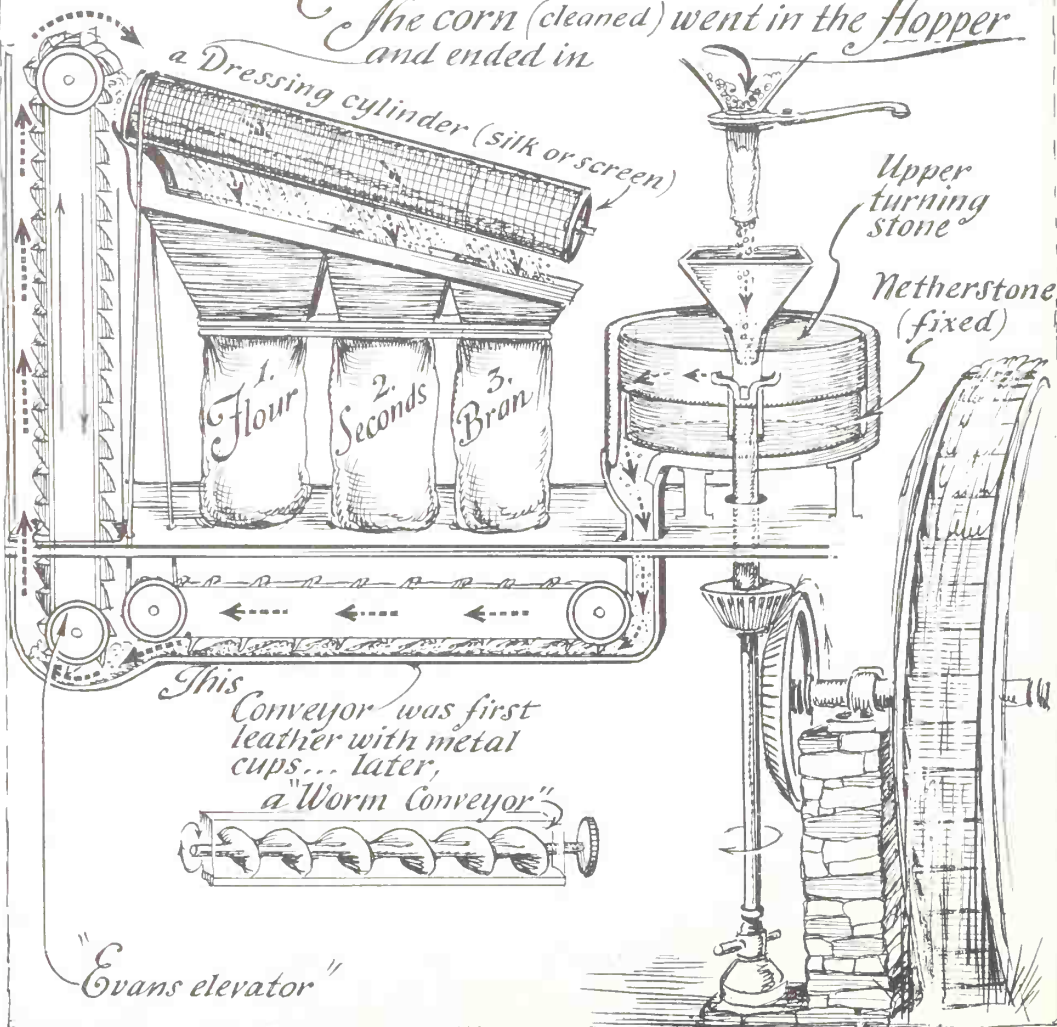 The corn (cleaned) went in the Hopper
and ended in
a Dressing cylinder (silk or screen)
Upper
turning
stone
Netherstone
(fixed)
1.
Flour
2.
Seconds
3.
Bran
This
Conveyor was first
leather with metal
cups... later,
a "Worm Conveyor"
"Evans elevator"